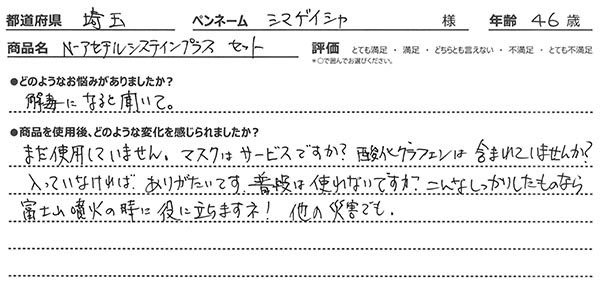 都道府県 埼玉 ペンネーム シマゲイシャ 様 年齢 46 歳
商品名 N-アセチルシステインプラス セット 評価 とても満足 ・ 満足 ・ どちらとも言えない ・ 不満足 ・ とても不満足
*○で囲んでお選びください。
●どのようなお悩みがありましたか？
解毒になると聞いて。
●商品を使用後、どのような変化を感じられましたか？
まだ使用していません。マスクはサービスですか？酸化グラフェンは含まれていませんか？
入っていなければ ありがたいです。普段は使れないですが、こんなしっかりしたものなら
富士山噴火の時に役に立ちますネ！ 他の災害でも.